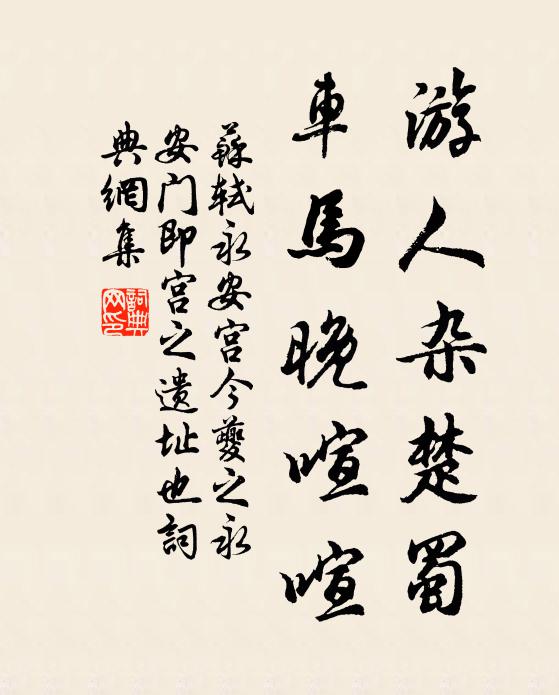 游人杂楚蜀
車馬晚喧喧
蘇軾永安宮今夔之永
安门即宫之遗址也詞
典網集
詞典网印